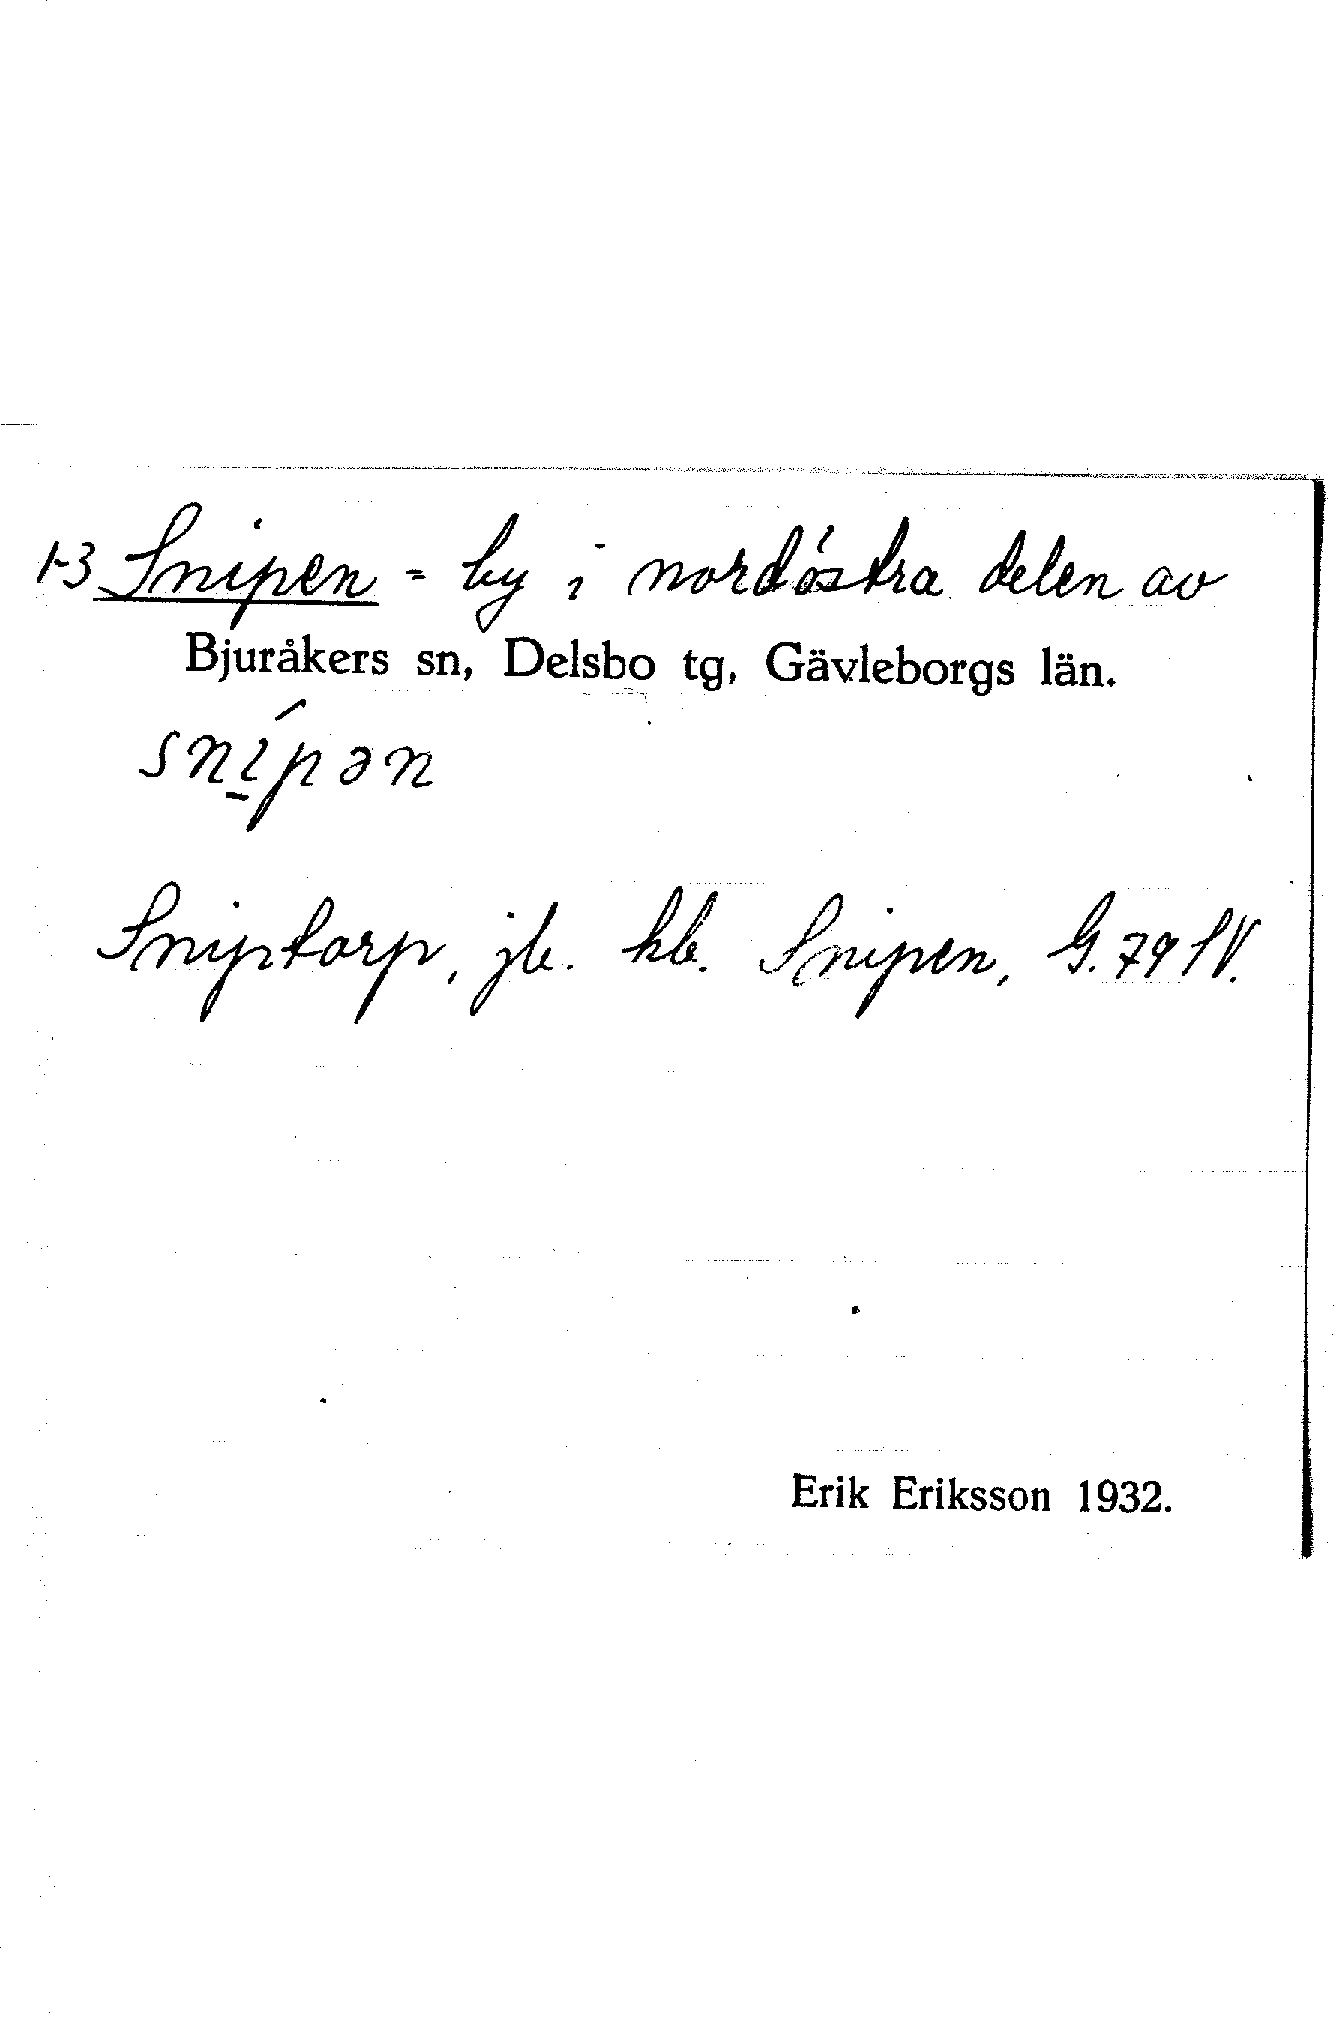 1-3 Snipen - by i nordöstra delen av
Bjuråkers sn, Delsbo tg, Gävleborgs län.
sní̱pən
Sniptorp, jb. kb. Snipen, G. 79 SV.
Erik Eriksson 1932.